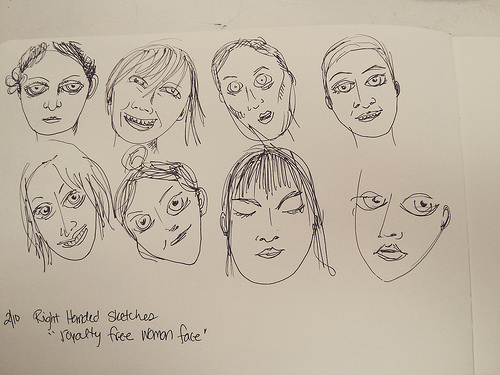 2/10 Right Handed Sketches
"royalty free woman face"